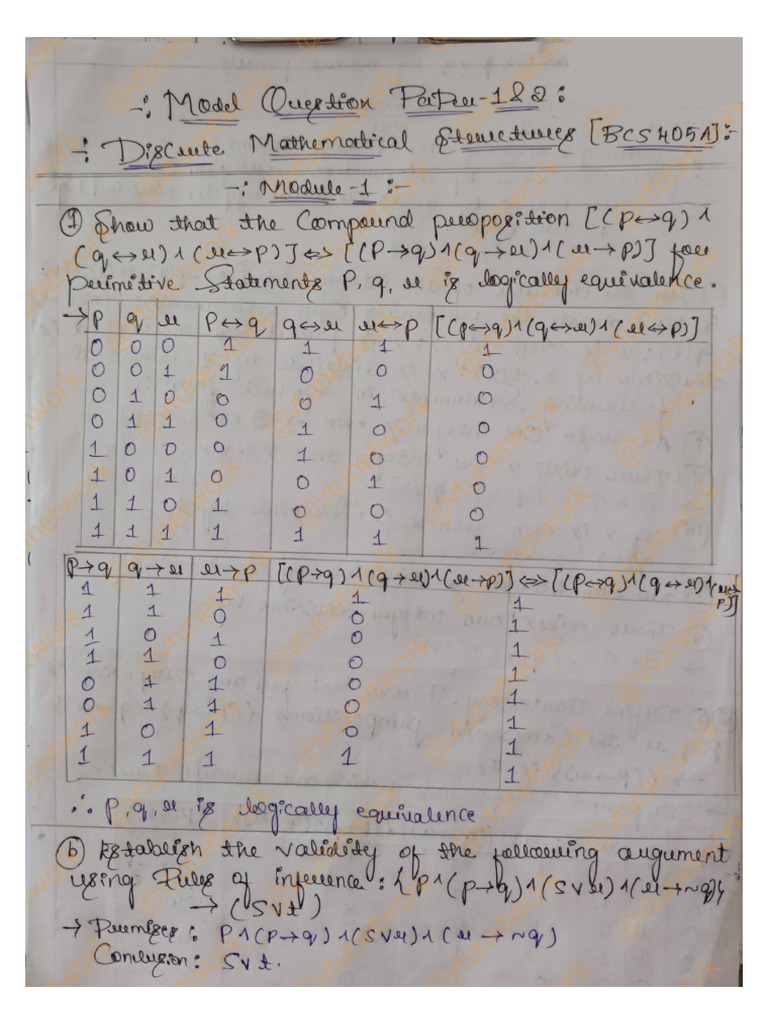 -: Model Question Paper-1&2:
-: Discrete Mathematical Structures [BCS405A]:-
-: Module-1 :-
① Show that the Compound proposition [(p↔q)∧
(q↔r)∧(r↔p)] ⇔ [(p→q)∧(q→r)∧(r→p)] for
primitive Statements p, q, r is logically equivalence.
→ p q r p↔q q↔r r↔p [(p↔q)∧(q↔r)∧(r↔p)]
0 0 0 1 1 1 1
0 0 1 1 0 0 0
0 1 0 0 0 1 0
0 1 1 0 1 0 0
1 0 0 0 1 0 0
1 0 1 0 0 1 0
1 1 0 1 0 0 0
1 1 1 1 1 1 1
p→q q→r r→p [(p→q)∧(q→r)∧(r→p)] ⇔ [(p↔q)∧(q↔r)∧(r↔p)]
1 1 1 1 1
1 1 0 0 1
1 0 1 0 1
1 1 0 0 1
0 1 1 0 1
0 1 1 0 1
1 0 1 0 1
1 1 1 1 1
∴ p, q, r is logically equivalence
ⓑ Establish the validity of the following argument
using Rules of inference: {p∧(p→q)∧(s∨r)∧(r→~q)}
→ (s∨t)
→ Premises: p∧(p→q)∧(s∨r)∧(r→~q)
Conclusion: s∨t.
@vtunetwork